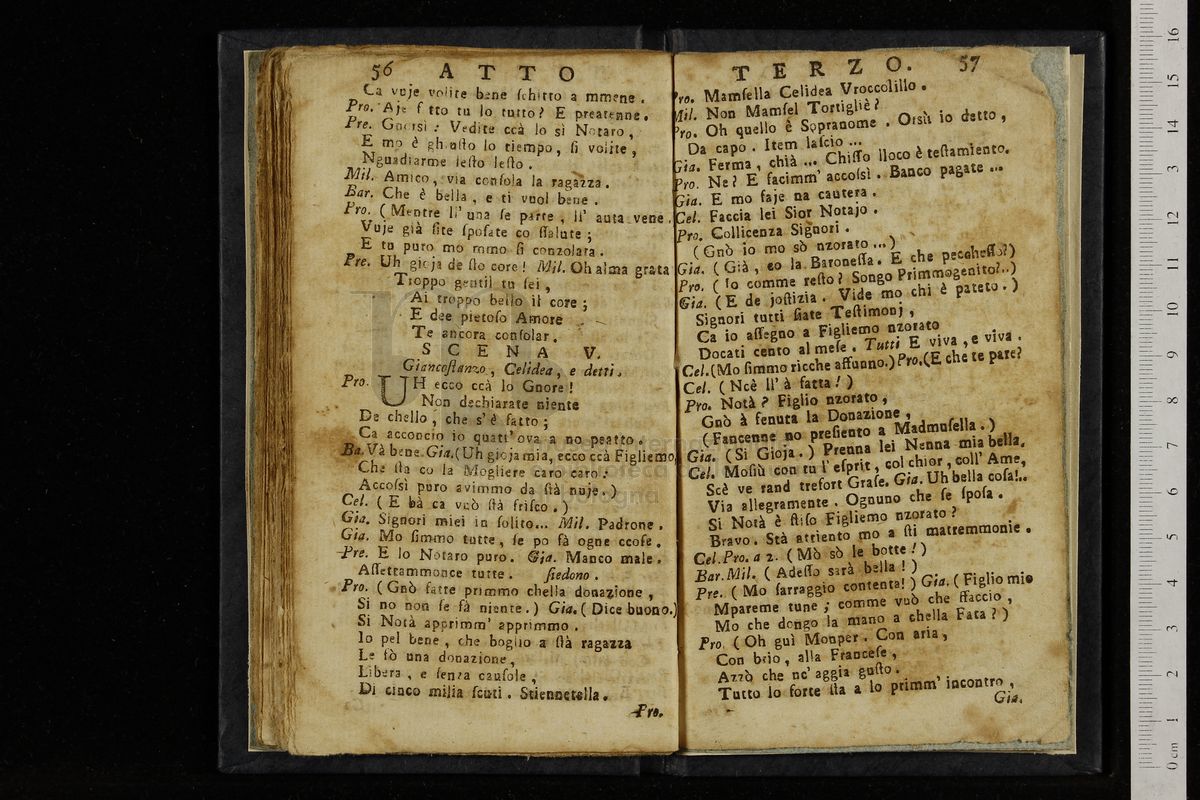 56 A T T O
Ca vuje volite bene schitto a mmene.
Pro. Aje f tto tu lo tutto? E preatenne.
Pre. Gnorsì: Vedite ccà lo sì Notaro,
E mo è ghiusto lo tiempo, si volite,
Nguadiarme lesto lesto.
Mil. Amico, via consola la ragazza.
Bar. Che è bella, e ti vuol bene.
Pro. (Mentre ll' una se parte, ll' auta vene.
Vuje già site sposate co ssalute;
E tu puro mo mmo si conzolara.
Pre. Uh gioja de sto core! Mil. Oh alma grata
Troppo gentil tu sei,
Ai troppo bello il core;
E dee pietoso Amore
Te ancora consolar.
S C E N A V.
Giancostanzo, Celidea, e detti.
Pro. UH ecco ccà lo Gnore!
Non dechiarate niente
De chello, che s'è fatto;
Ca acconcio io quatt' ova a no peatto.
Ba. Và bene. Gia. (Uh gioja mia, ecco ccà Figliemo,
Che sta co la Mogliere caro caro:
Accossì puro avimmo da stà nuje.)
Cel. (E bà ca vuò stà frisco.)
Gia. Signori miei in solito... Mil. Padrone.
Gia. Mo simmo tutte, se po fà ogne ccose.
Pre. E lo Notaro puro. Gia. Manco male.
Assettammonce tutte. siedono.
Pro. (Gnò fatte primmo chella donazione,
Si no non se fà niente.) Gia. (Dice buono.)
Si Notà apprimm' apprimmo.
Io pel bene, che boglio a stà ragazza
Le fò una donazione,
Libera, e senza causole,
Di cinco milia scuti. Stiennetella.
Pro.
T E R Z O. 57
Pro. Mamsella Celidea Vroccolillo.
Mil. Non Mamsel Tortigliè?
Pro. Oh quello è Sopranome. Orsù io detto,
Da capo. Item lascio ...
Gia. Ferma, chià ... Chisso lloco è testamiento.
Pro. Ne? E facimm' accossì. Banco pagate ...
Gia. E mo faje na cautera.
Cel. Faccia lei Sior Notajo.
Pro. Collicenza Signori.
(Gnò io mo sò nzorato ...)
Gia. (Già, co la Baronessa. E che pecchesso?)
Pro. (Io comme resto? Songo Primmogenito?..)
Gia. (E de jostizia. Vide mo chi è pateto.)
Signori tutti siate Testimonj,
Ca io assegno a Figliemo nzorato
Docati cento al mese. Tutti E viva, e viva.
Cel. (Mo simmo ricche affunno.) Pro. (E che te pare?
Cel. (Ncè ll' à fatta!)
Pro. Notà? Figlio nzorato,
Gnò à fenuta la Donazione,
(Fancenne no presiento a Madmusella.)
Gia. (Si Gioja.) Prenna lei Nenna mia bella.
Cel. Mosiù con tu l'esprit, col chior, coll' Ame,
Scè ve rand trefort Grase. Gia. Uh bella cosa!..
Via allegramente. Ognuno che se sposa.
Si Notà è stiso Figliemo nzorato?
Bravo. Stà attiento mo a sti matremmonie.
Cel. Pro. a 2. (Mò sò le botte!)
Bar. Mil. (Adesso sarà bella!)
Pre. (Mo sarraggio contenta!) Gia. (Figlio mio
Mpareme tune; comme vuò che ffaccio,
Mo che dongo la mano a chella Fata?)
Pro. (Oh guì Monper. Con aria,
Con brio, alla Francese,
Azzò che nc' aggia gusto.
Tutto lo forte sta a lo primm' incontro,
Gia.